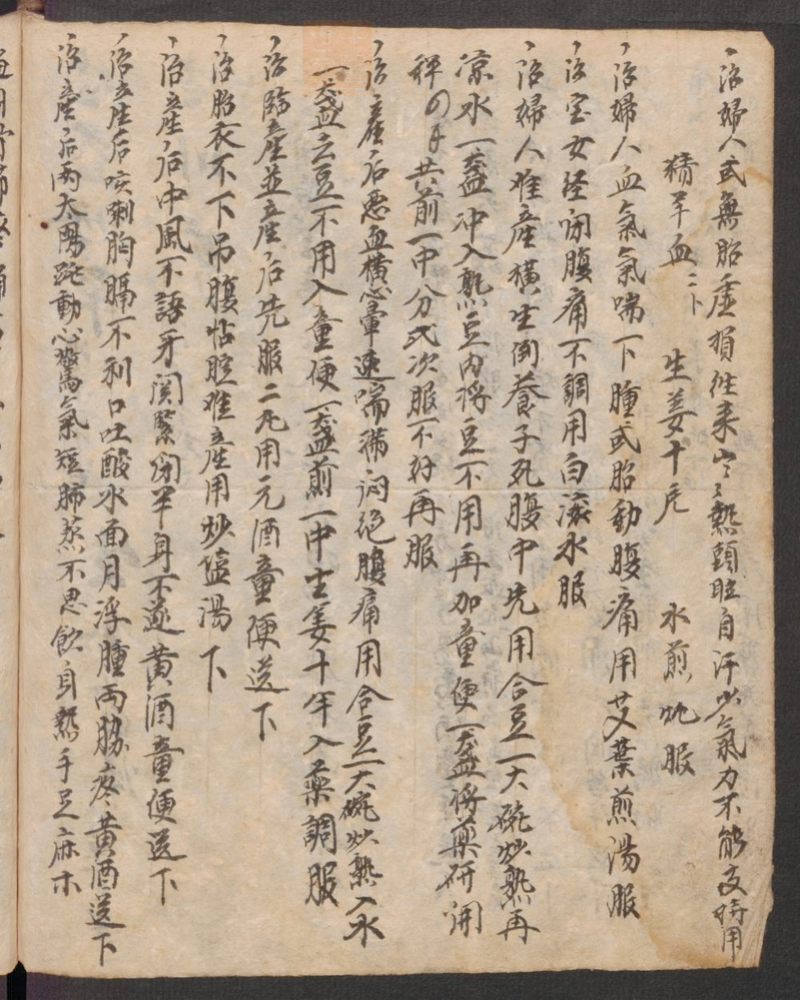 、治婦人或無胎虛損往來寒熱頭眩自汗少氣力不能支持用
猪羊血 生姜十片 水煎 服
、治婦人血氣氣喘下腫或胎動腹痛用艾葉煎湯服
、治室女経闭腹痛不調用白滚水服
、治婦人难產橫生倒養子死腹中先用合豆一大碗炒熟再
凉水一盏冲入熟豆内将豆不用再加童便一盏将藥研開
共前一中分弍次服不好再服
、治產后惡血橫心暈迷喘满闷绝腹痛用合豆一大碗炒熟入水
一盏去豆不用入童便一盏煎一中生姜十 入藥調服
、治臨產並產后先服二丸用元酒童便送下
、治胎衣不下吊腹 难產用炒塩湯下
、治產后中風不語牙関緊闭半身不遂黄酒童便送下
、治產后咳 胸膈不利口吐酸水面月浮腫兩脇疼黄酒送下
、治產后兩太陽 動心驚氣短肺蒸不思飲身熱手足麻木